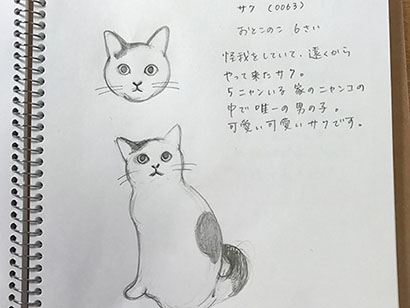 サク (0063)
おとこのこ 6さい
怪我をしていて、遠くから
やって来たサク。
5ニャンいる 家のニャンコの
中で唯一の男の子。
可愛い可愛いサクです。